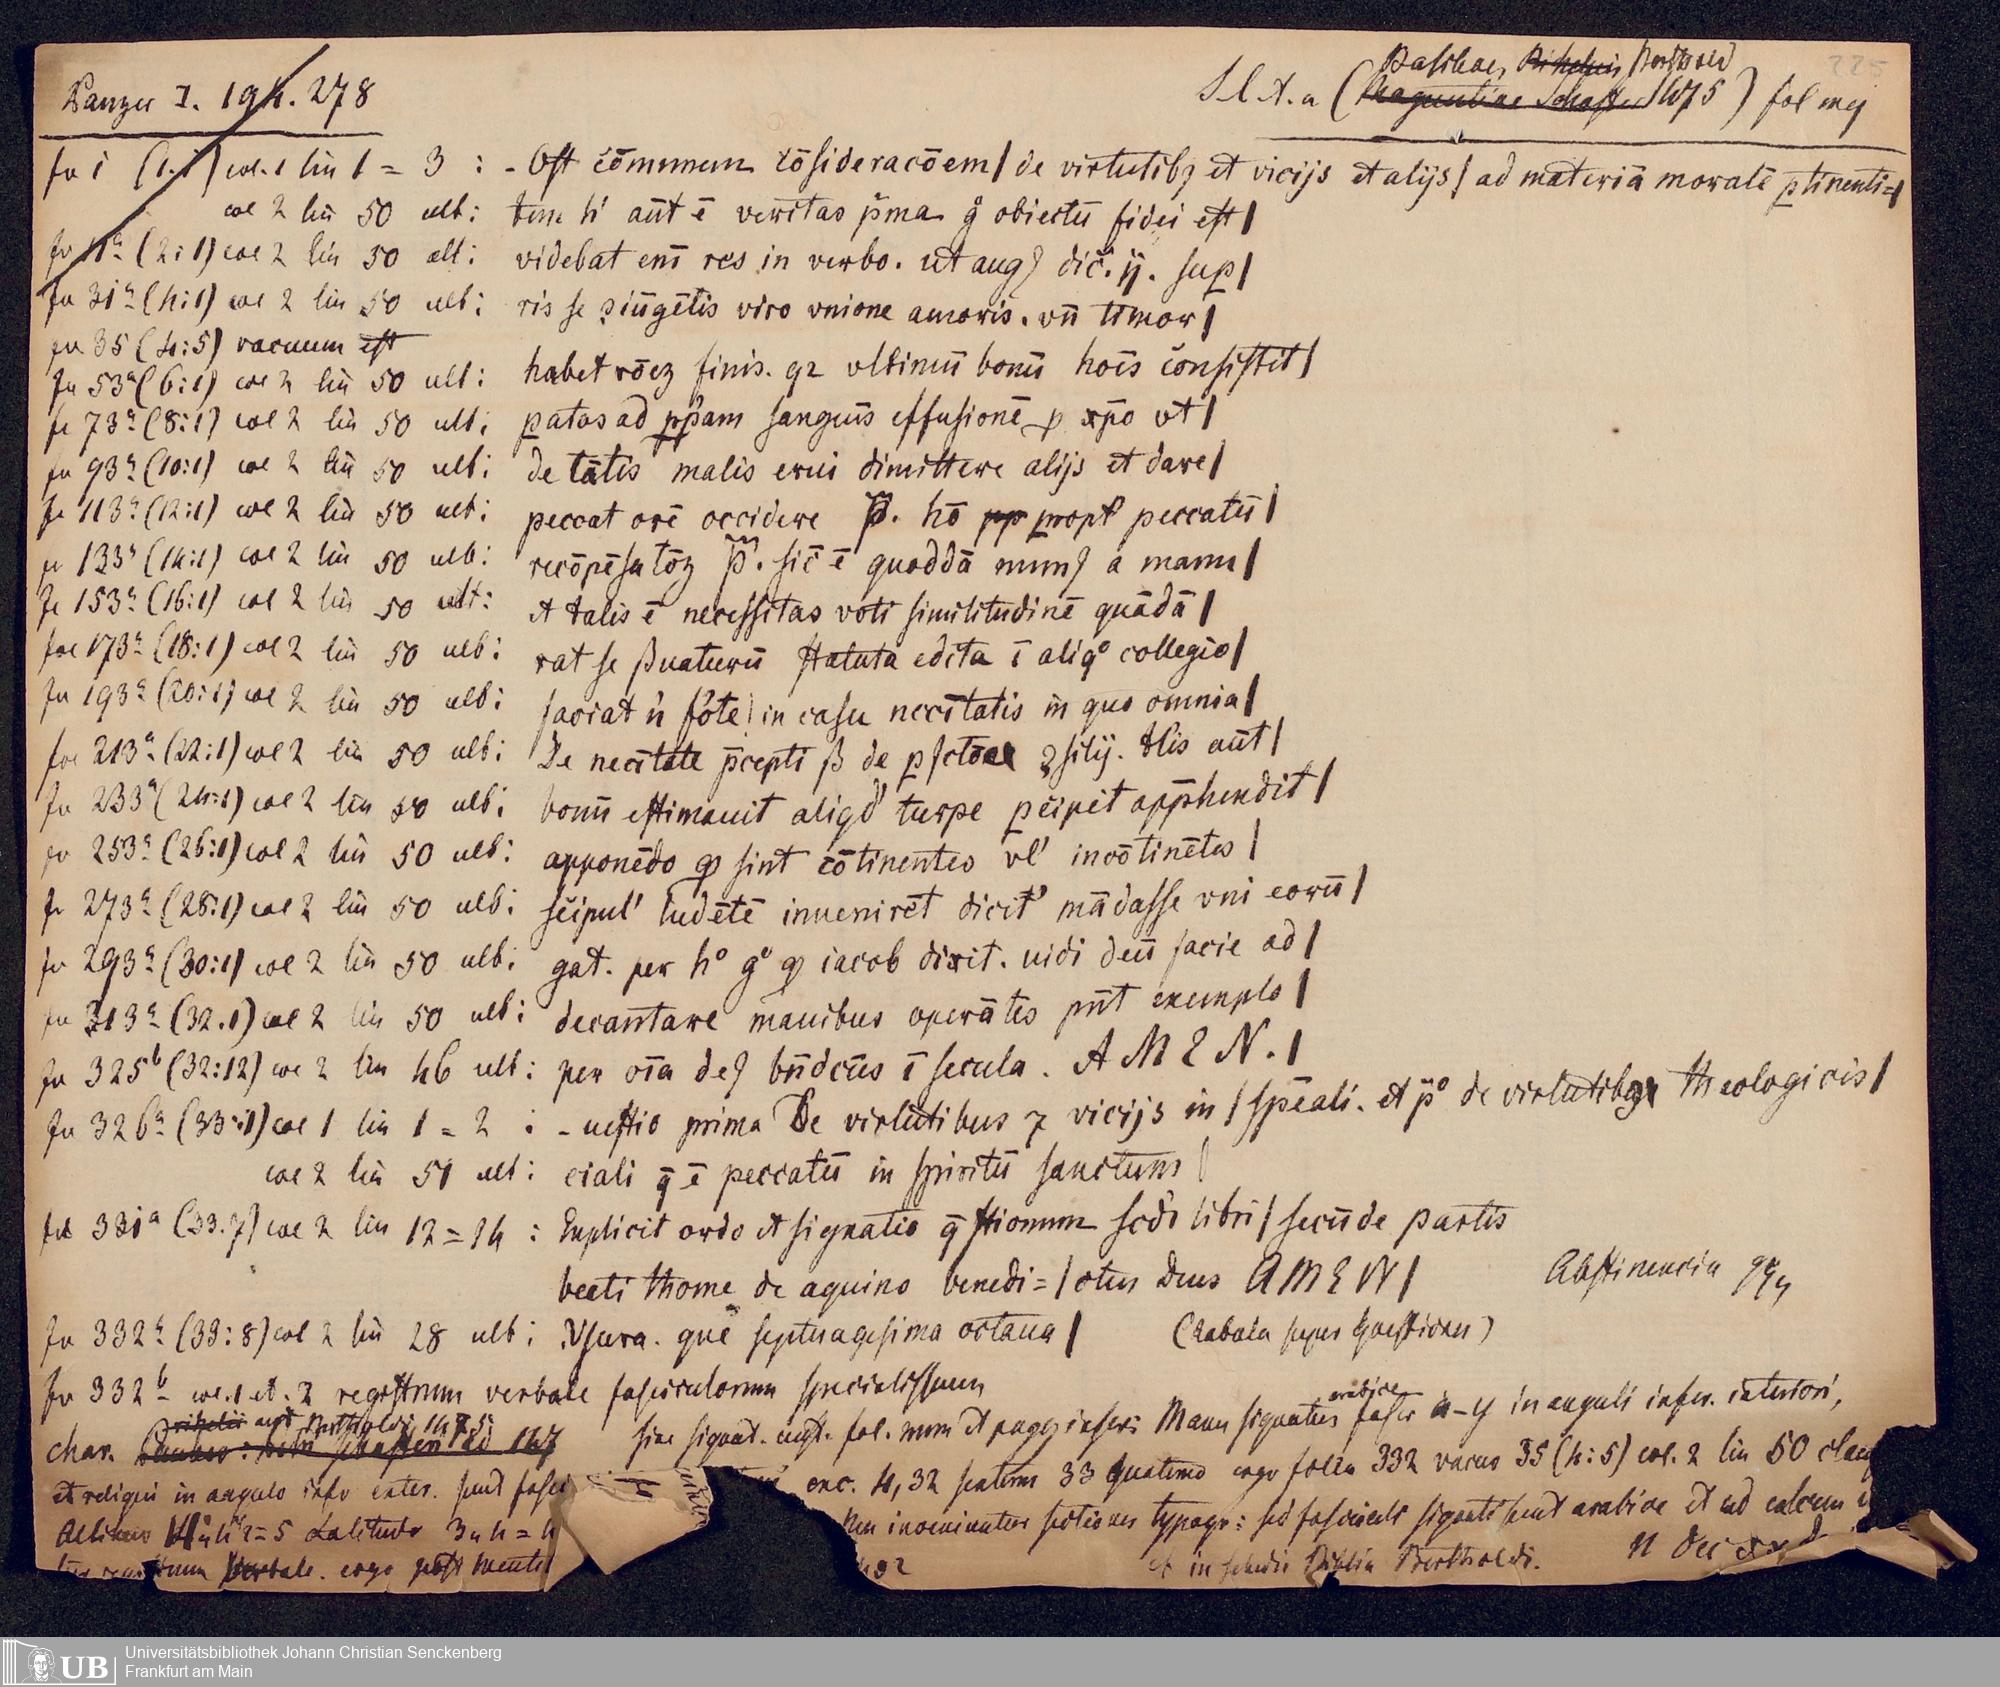 Panzer I. 194. 278
S. l. et. a (Basileae, Richelis, Berthold
Maguntiae Schoffer 1475) fol maj
fu 1 (1:1) col. 1 lin 1 = 3 : - Ost cōmunem cōsideracōem / de virtutibꝫ et vicijs et alijs / ad materiā moralē ꝑtinenti= /
col 2 lin 50 ult: tur h' aūt ē veritas p̄ma gͦ obiectū fidei est /
fu 11ª (2:1) col 2 lin 50 ult: videbat enī res in verbo. ut augꝰ dič. ij. sup /
fu 31ª (4:1) col 2 lin 50 ult: ris se ꝯiūgētis viro vnione amoris. vn̄ timor /
fu 35 (4:5) vacuum est
fu 53ª (6:1) col 2 lin 50 ult: habet rōeꝫ finis. qꝛ vltimū bonū hoīs cōnsistit /
fu 73ª (8:1) col 2 lin 50 ult: patas ad pp̄am sanguīs effusionē ꝓ xp̄o vt /
fu 93ª (10:1) col 2 lin 50 ult: de tātis malis erui dimittere alijs et dare /
fu 113ª (12:1) col 2 lin 50 ult: peccat orē occidere p̄. hō pp propt' peccatū /
fu 133ª (14:1) col 2 lin 50 ult: recōpēsatōꝫ p̄. sič ē quoddā munꝰ a manu /
fu 153ª (16:1) col 2 lin 50 ult: et talis ē necessitas voti similitudinē quādā /
fol 173ª (18:1) col 2 lin 50 ult: rat se ẞuaturū statuta edita ī aliqͦ collegio /
fu 193ª (20:1) col 2 lin 50 ult: faciat n̄ fōte / in casu necītatis in quo omnia /
fol 213ª (22:1) col 2 lin 50 ult: De necītate p̄cepti ẞ de ꝑfctōne ꝯsilij. His aūt /
fu 233ª (24:1) col 2 lin 50 ult: bonū estimauit aliqd' turpe ꝑcipit app̄hendit /
fu 253ª (26:1) col 2 lin 50 ult: apponēdo ꝙ sint cōtinentes vl' incōtinētes /
fu 273ª (28:1) col 2 lin 50 ult: sčipul' ludētē inuenirēt dicit' mādasse vni eorū /
fu 293ª (30:1) col 2 lin 50 ult: gat. per hͦ gͦ ꝙ iacob dixit. uidi deū facie ad /
fu 313ª (32.1) col 2 lin 50 ult: decantare manibus operātes pn̄t exemplo /
fu 325ᵇ (32:12) col 2 lin 46 ult: per oīa deꝰ bn̄dcūs ī secula. A M E N. /
fu 326ª (33:1) col 1 lin 1 = 2 : - uestio prima De virtutibus ⁊ vicijs in / spēali. et p̄ͦ de virtutibꝫ theologicis /
col 2 lin 51 ult: ciali q̄ ē peccatū in spiritū sanctum /
fol 331ª (33.7) col 2 lin 12 = 14 : Explicit ordo et signatio q̄stionum scd'i libri / secūde partis
beati thome de aquino benedi= / ctus Deus A M E N /
Abstinencia
fu 332ª (33:8) col 2 lin 28 ult: Vsura. que septuagesima octaua / (tabula super Questiones)
fu 332ᵇ col. 1 et. 2 registrum verbale fasciculorum specialissimum
char. sine signat. cust. fol. num et pagg inscr: Manu signatus arabice fascic a-y in anguli infer. interiori,
et reliqui in angulo infr exter. sunt fasci exc. 4, 32 senterni 33 quaterno ergo folia 332 vacuo 35 (4:5) col. 2 lin 50
Altitudo Latitudo inveniuntur sectiones typogr: sed fasciculi signati sunt arabice et ad calcem
registrum verbale. ergo post et in schedis Biblia Bertholdi. 11 Dec
Universitätsbibliothek Johann Christian Senckenberg
Frankfurt am Main
UB